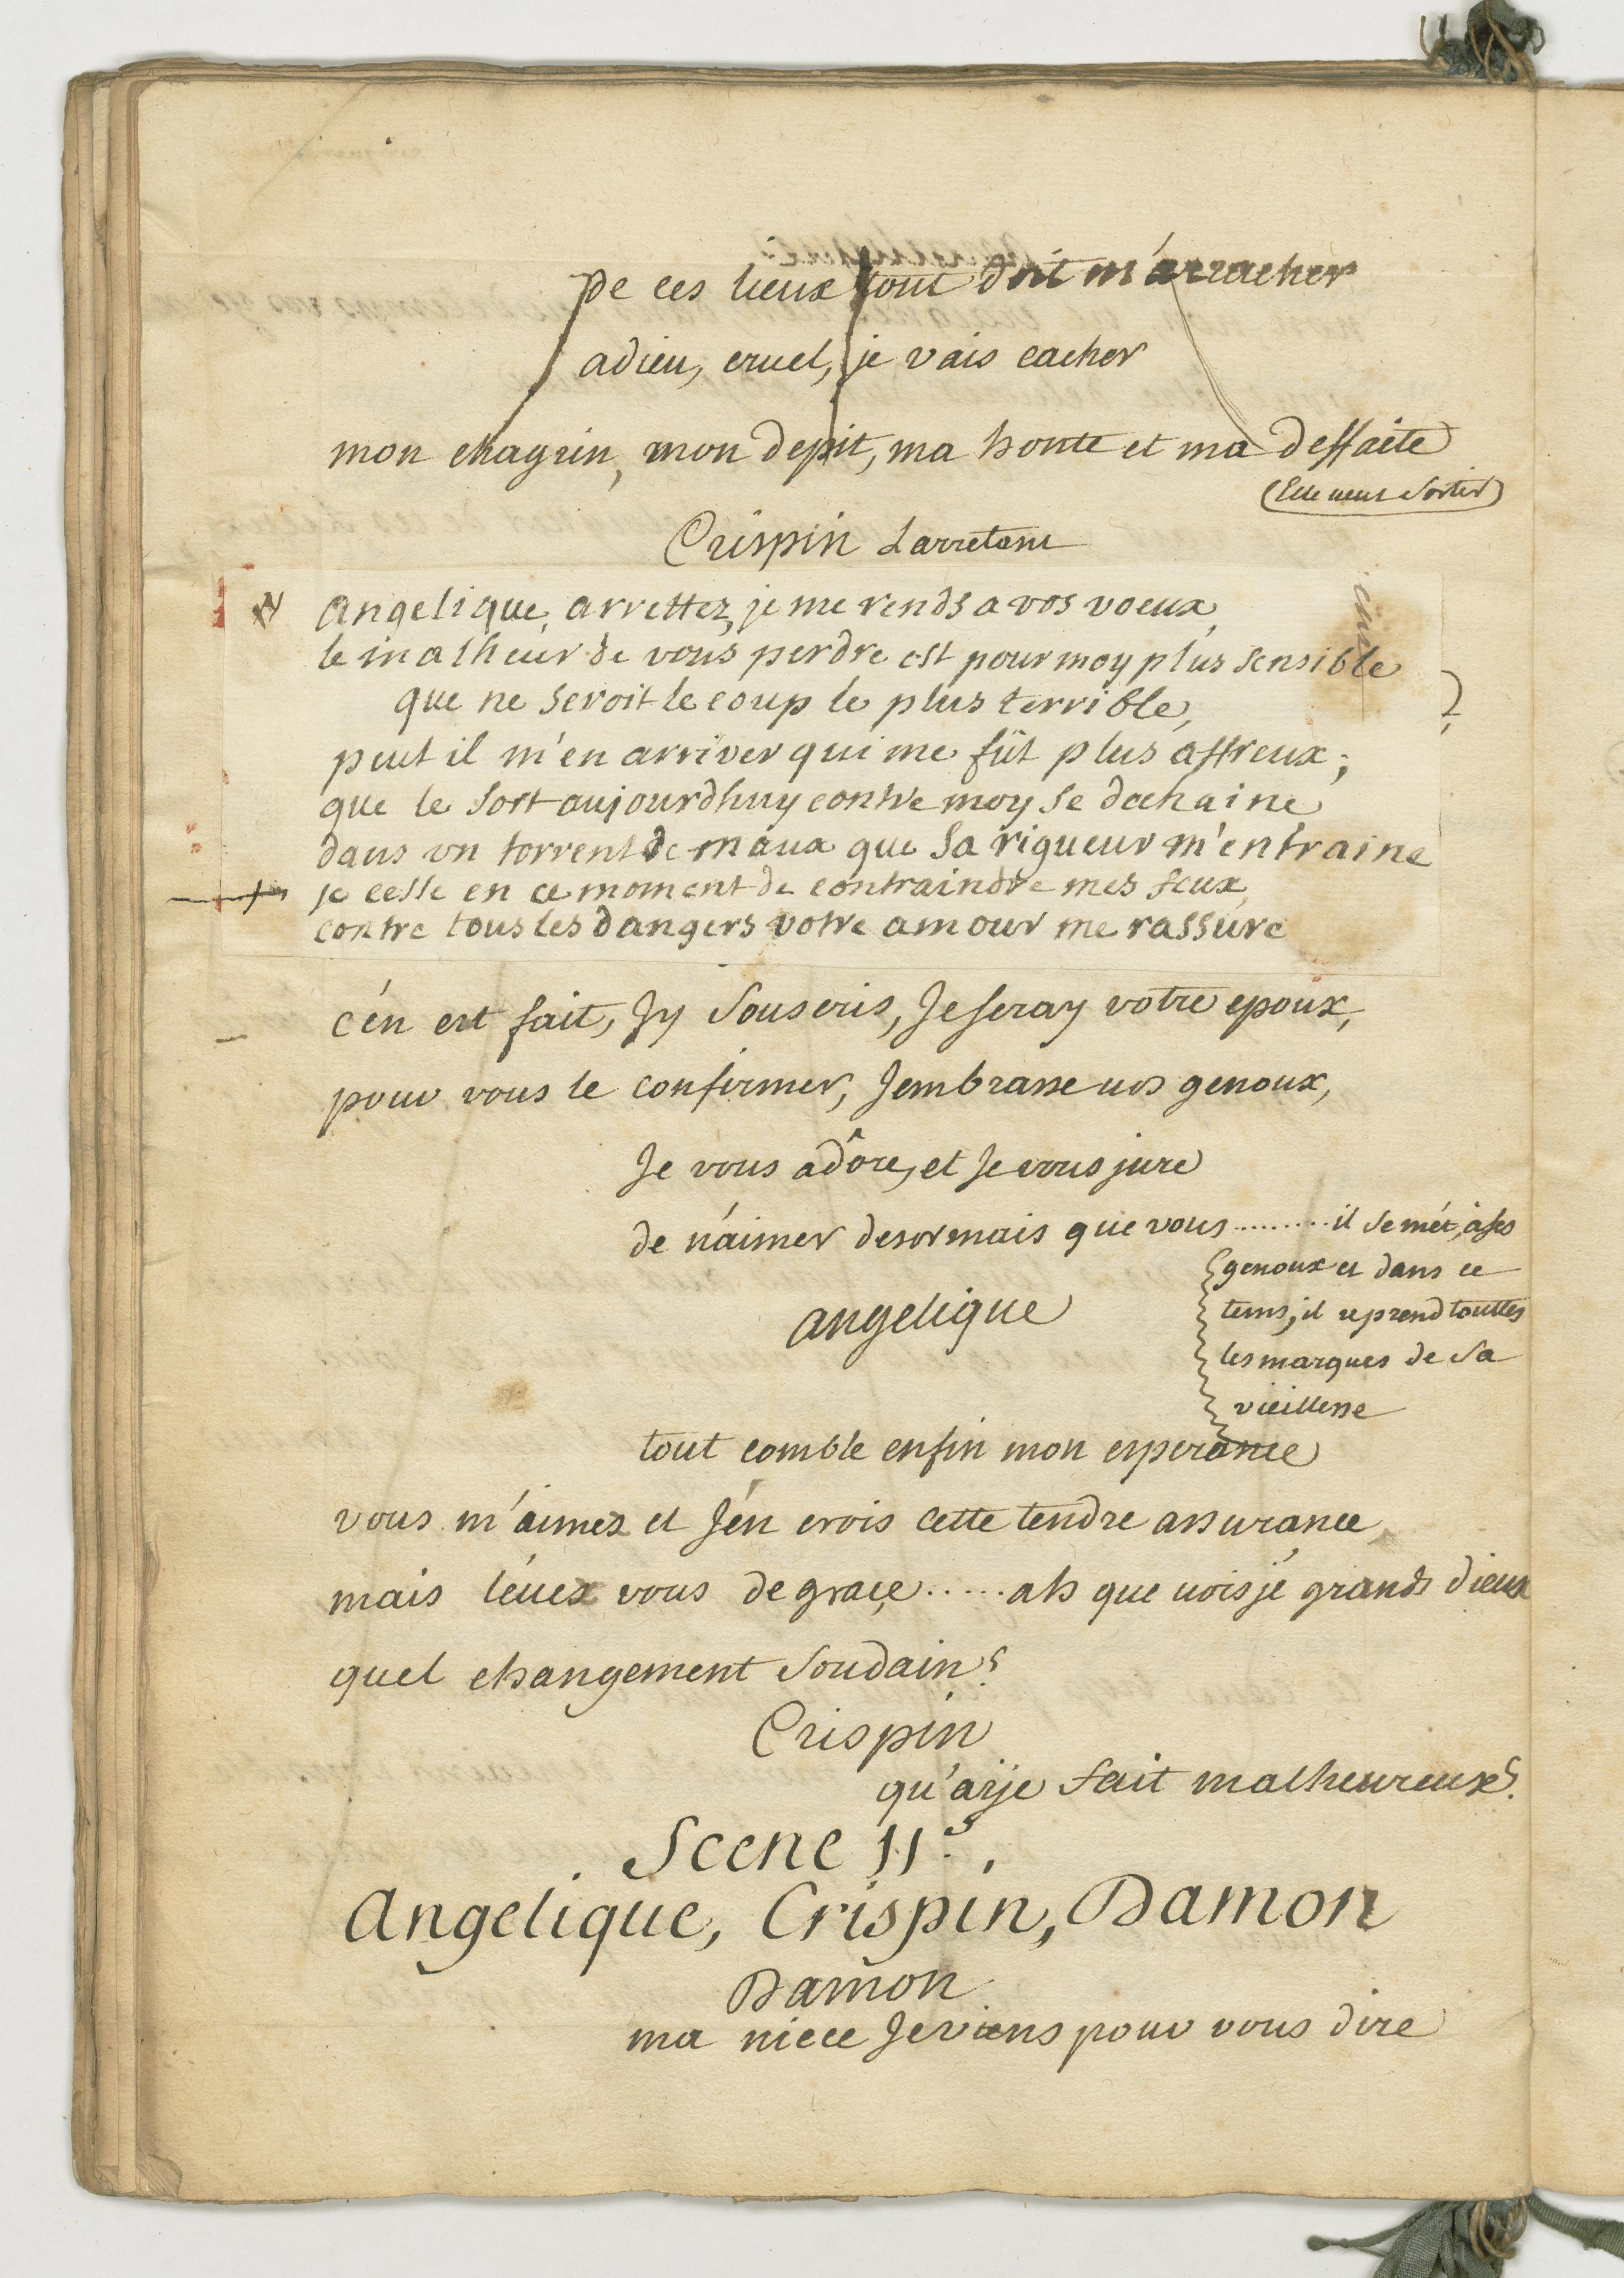 De ces lieux tout doit m'arracher
adieu, cruel, je vais cacher
mon chagrin, mon depit, ma honte et ma deffaite
(Elle veut Sortir)
Crispin Larretant
Angelique, arrettez, je me rends a vos voeux,
le malheur de vous perdre est pour moy plus sensible
que ne seroit le coup le plus terrible,
peut il m'en arriver qui me fût plus affreux;
que le Sort aujourdhuy contre moy se dechaine
dans un torrent de maux que Sa rigueur m'entraine
je cesse en ce moment de contraindre mes feux,
contre tous les dangers votre amour me rassure
c'én est fait, Jy Souscris, Je seray votre epoux,
pour vous le confirmer, Jembrasse vos genoux,
Je vous adôre, et Je vous jure
de n'aimer desormais que vous ......... il Se mét, à ses
genoux et dans ce
tems, il reprend touttes
les marques de Sa
vieillesse
angelique
tout comble enfin mon esperance
vous m'aimez et J'én crois cette tendre assurance
mais lévez vous de grace ..... ah que vois jé grands dieux
quel changement Soudain?
Crispin
qu'aije fait malheureux?
Scene 11e.
Angelique, Crispin, Damon
Damon
ma niece Je viens pour vous dire